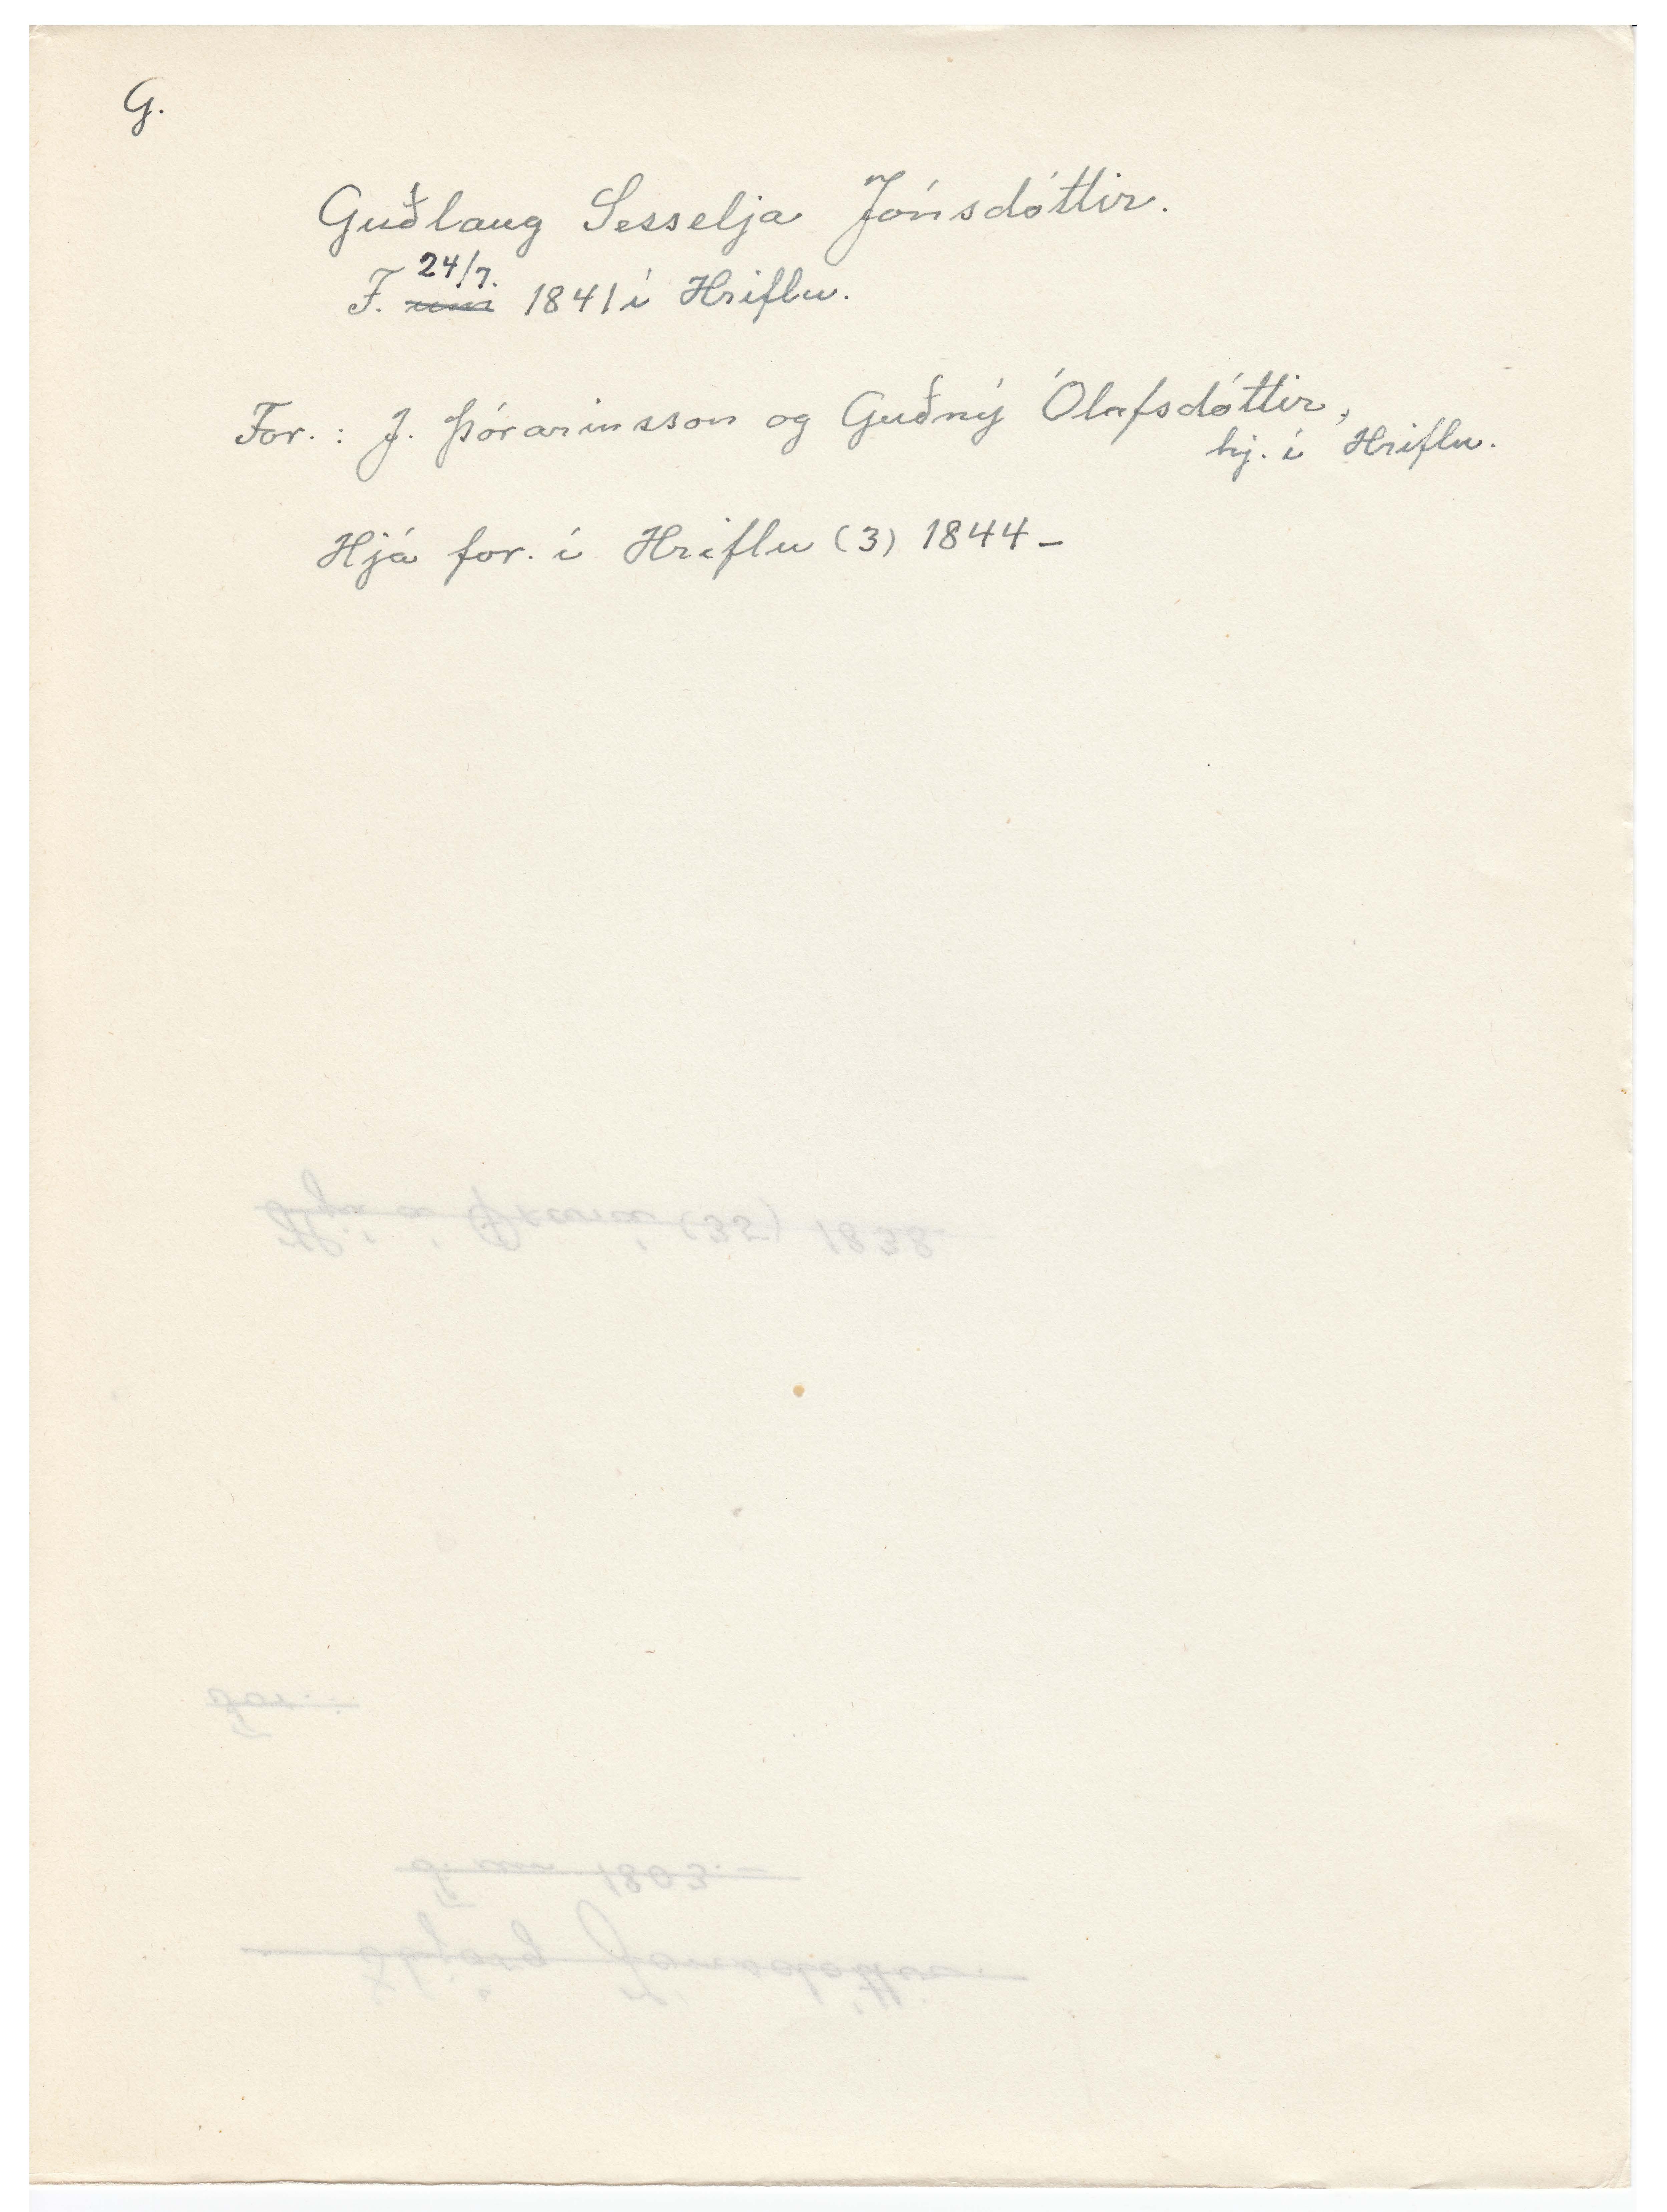 G.
Guðlaug Sesselja Jónsdóttir.
24/7.
F. um 1841 í Hriflu.
For.: J. Þórarinsson og Guðný Ólafsdóttir,
hj. í Hriflu.
Hjá for. í Hriflu (3) 1844 –